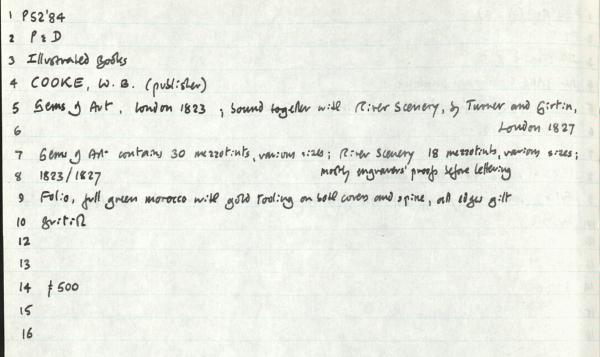 1 P52'84
2 P & D
3 Illustrated Books
4 COOKE, W. B. (publisher)
5 Gems of Art, London 1823 ; bound together with River Scenery, by Turner and Girtin,
6 London 1827
7 Gems of Art contains 30 mezzotints, various sizes; River Scenery 18 mezzotints, various sizes;
8 1823/1827 mostly engravers' proofs before lettering
9 Folio, full green morocco with gold tooling on both covers and spine, all edges gilt
10 British
12
13
14 £500
15
16